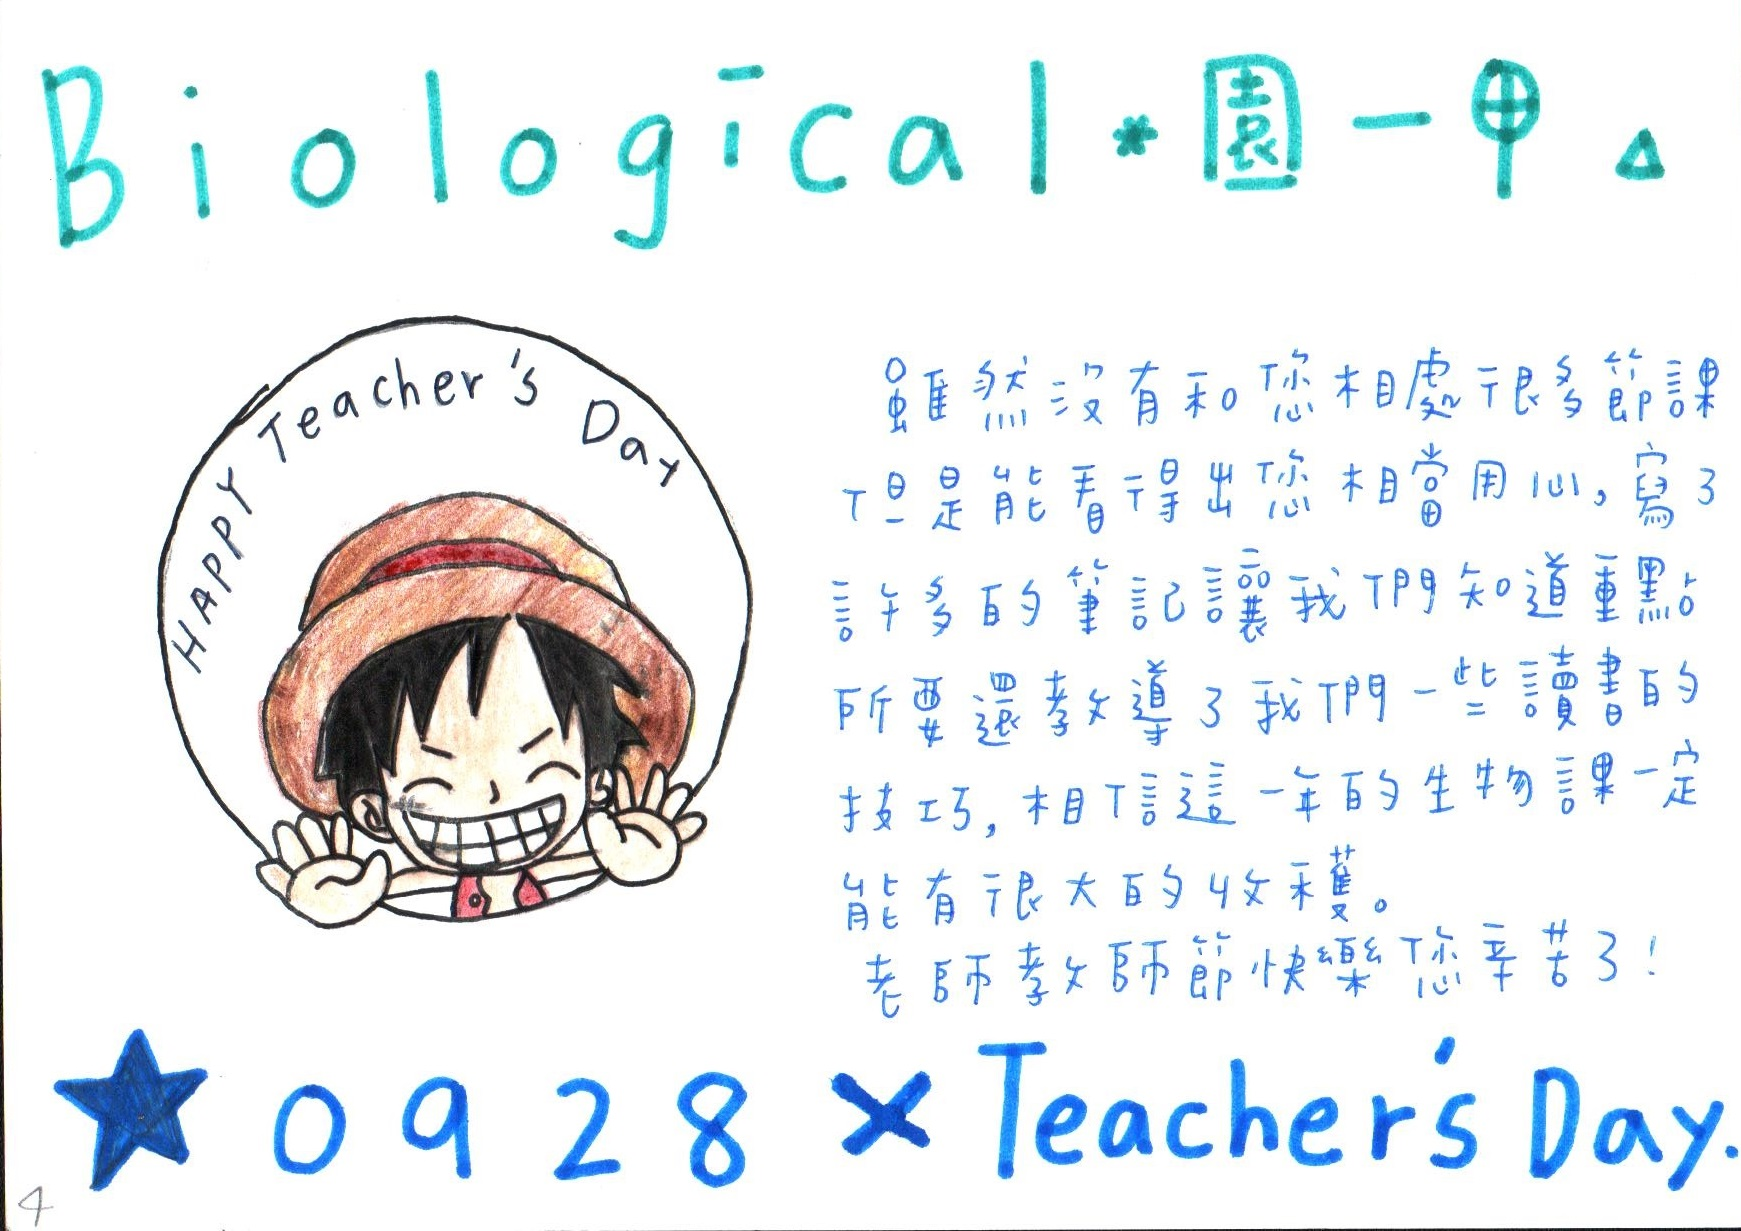 Biological * 園一甲 △
HAPPY Teacher's Day
雖然沒有和您相處很多節課
但是能看得出您相當用心，寫了
許多的筆記讓我們知道重點
所要還教導了我們一些讀書的
技巧，相信這一年的生物課一定
能有很大的收穫。
老師教師節快樂您辛苦了!
★ 0928 × Teacher's Day.
4